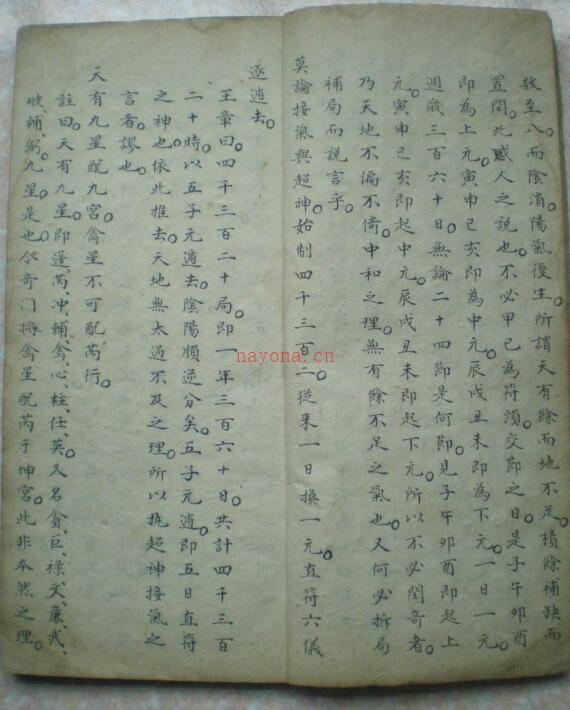 数至八而陰消陽氣復生。所謂天有餘而地不足。積除補缺而
置閏。此惑人之說也。不必甲己為符頭。交節之日。是子午卯酉
即為上元。寅申己亥即為中元。辰戌丑未即為下元。一日一元。
週歲三百六十日。無論二十四節。是何節。見子午卯酉即起上
元。寅申己亥即起中元。辰戌丑未即起下元。所以不必閏奇者。
乃天地不偏不倚。中和之理。無有餘不足之氣也。又何必拆局
補局而說言乎。
莫論接氣與超神。始制四千三百二。從来一日換一元。直符六儀
逐遁去。
王章曰。四千三百二十局。即一年三百六十日。共計四千三百
二十時。以五子元遁去。陰陽順逆分矣。五子元遁。即五日直符
之神也。依此推去。天地無太過不及之理。所以执超神接氣之
言者。謬也。
天有九星配九宮。禽星不可配芮行。
註曰。天有九星。即蓬、芮、冲、輔、禽、心、柱、任、英。又名貪、巨、祿、文、廉、武、
破、輔、弼。九星是也。今奇门将禽星配芮于坤宮。此非本然之理。
nayona.cn